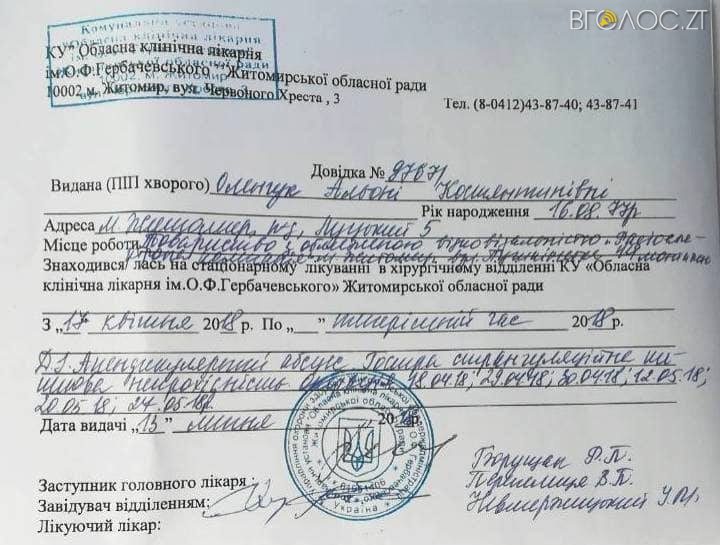 ВГОЛОС.ZT
Комунальна установа
"Обласна клінічна лікарня
КУ "Обласна клінічна лікарня
ім.О.Ф.Гербачевського" Житомирської обласної ради
10002,м. Житомир, вул. Червоного Хреста , 3
Тел. (8-0412)43-87-40; 43-87-41
Довідка № 97671
Видана (ПІП хворого) Оленчук Альоні Костянтинівні
Рік народження 16.08.77р
Адреса м. Житомир, Луцький 5
Місце роботи Товариство з обмеженою відповідальністю
Знаходився лась на стаціонарному лікуванні в хірургічному відділенні КУ «Обласна
клінічна лікарня ім.О.Ф.Гербачевського» Житомирської обласної ради
З „17 квітня 2018 р. По „ " теперішній час 2018 р.
Д.З. Апендикулярний абсцес. Гостра странгуляційна ки-
шкова непрохідність 18.04.18; 29.04.18; 30.04.18; 12.05.18;
20.05.18; 24.05.18р.
Дата видачі „13" липня 2018р.
Україна
Заступник головного лікаря :
Завідувач відділенням:
Лікуючий лікар: